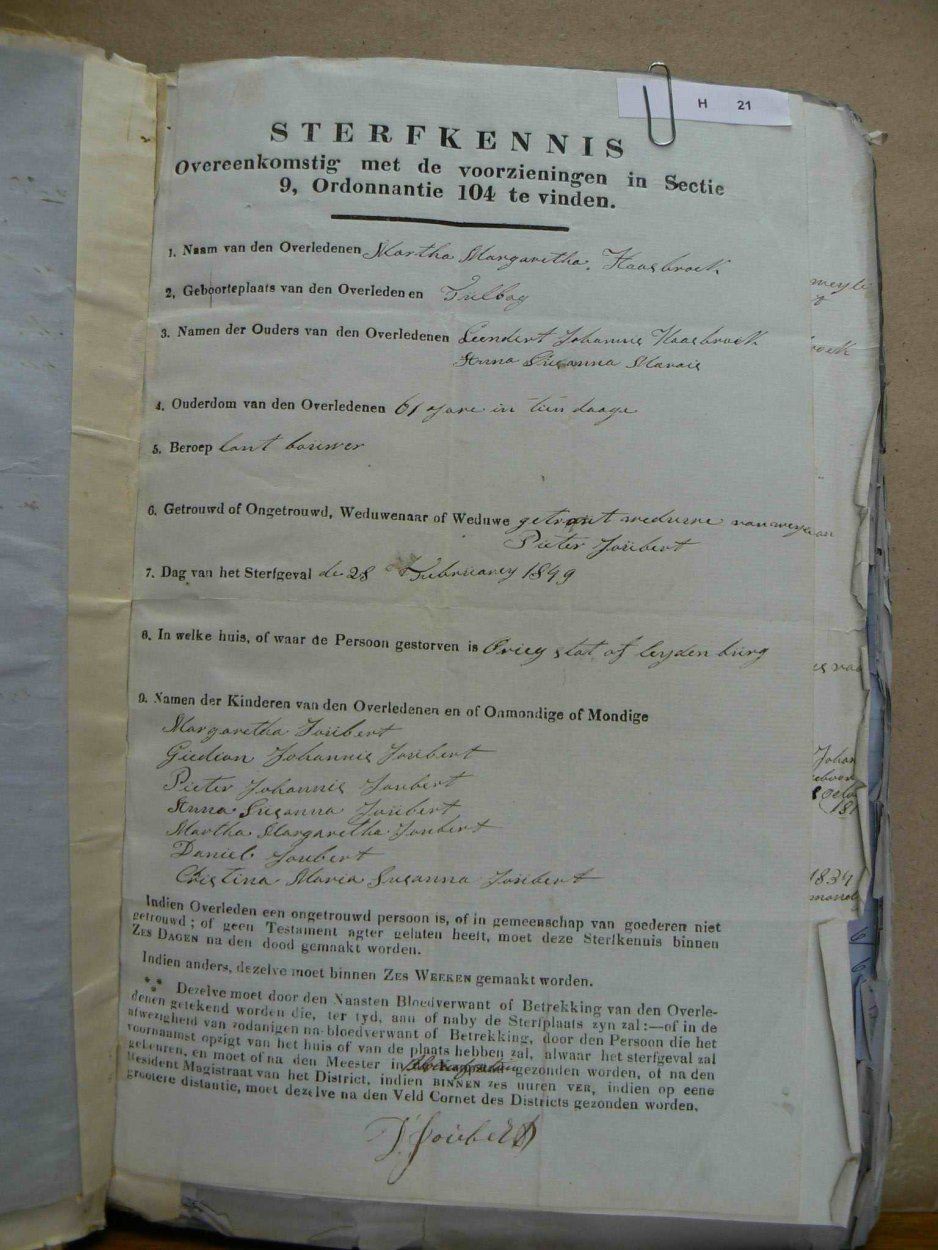 H 21
STERFKENNIS
Overeenkomstig met de voorzieningen in Sectie
9, Ordonnantie 104 te vinden.
1. Naam van den Overledenen Martha Margaretha Haasbroek
2, Geboorteplaats van den Overledenen Tulbag
3. Namen der Ouders van den Overledenen Leendert Johannis Haasbroek
Anna Susanna Marais
4. Ouderdom van den Overledenen 61 jare in tien daage
5. Beroep lant bouwer
6. Getrouwd of Ongetrouwd, Weduwenaar of Weduwe getrout weduwe van weylen
Pieter Joubert
7. Dag van het Sterfgeval de 28 Februarey 1849
8. In welke huis, of waar de Persoon gestorven is Orieg stat of leydenburg
9. Namen der Kinderen van den Overledenen en of Onmondige of Mondige
Margaretha Joubert
Giedion Johannis Joubert
Pieter Johannis Joubert
Anna Susanna Joubert
Martha Margaretha Joubert
Daniel Joubert
Cristina Maria Susanna Joubert
Indien Overleden een ongetrouwd persoon is, of in gemeenschap van goederen niet
getrouwd; of geen Testament agter gelaten heeft, moet deze Sterfkennis binnen
ZES DAGEN na den dood gemaakt worden.
Indien anders, dezelve moet binnen ZES WEEKEN gemaakt worden.
Dezelve moet door den Naasten Bloedverwant of Betrekking van den Overle-
denen getekend worden die, ter tyd, aan of naby de Sterfplaats zyn zal:—of in de
afwezigheid van zodanigen na-bloedverwant of Betrekking, door den Persoon die het
voornaamst opzigt van het huis of van de plaats hebben zal, alwaar het sterfgeval zal
gebeuren, en moet of na den Meester in gezonden worden, of na den
Resident Magistraat van het District, indien BINNEN ZES UUREN VER, indien op eene
grootere distantie, moet dezelve na den Veld Cornet des Districts gezonden worden.
Joubert